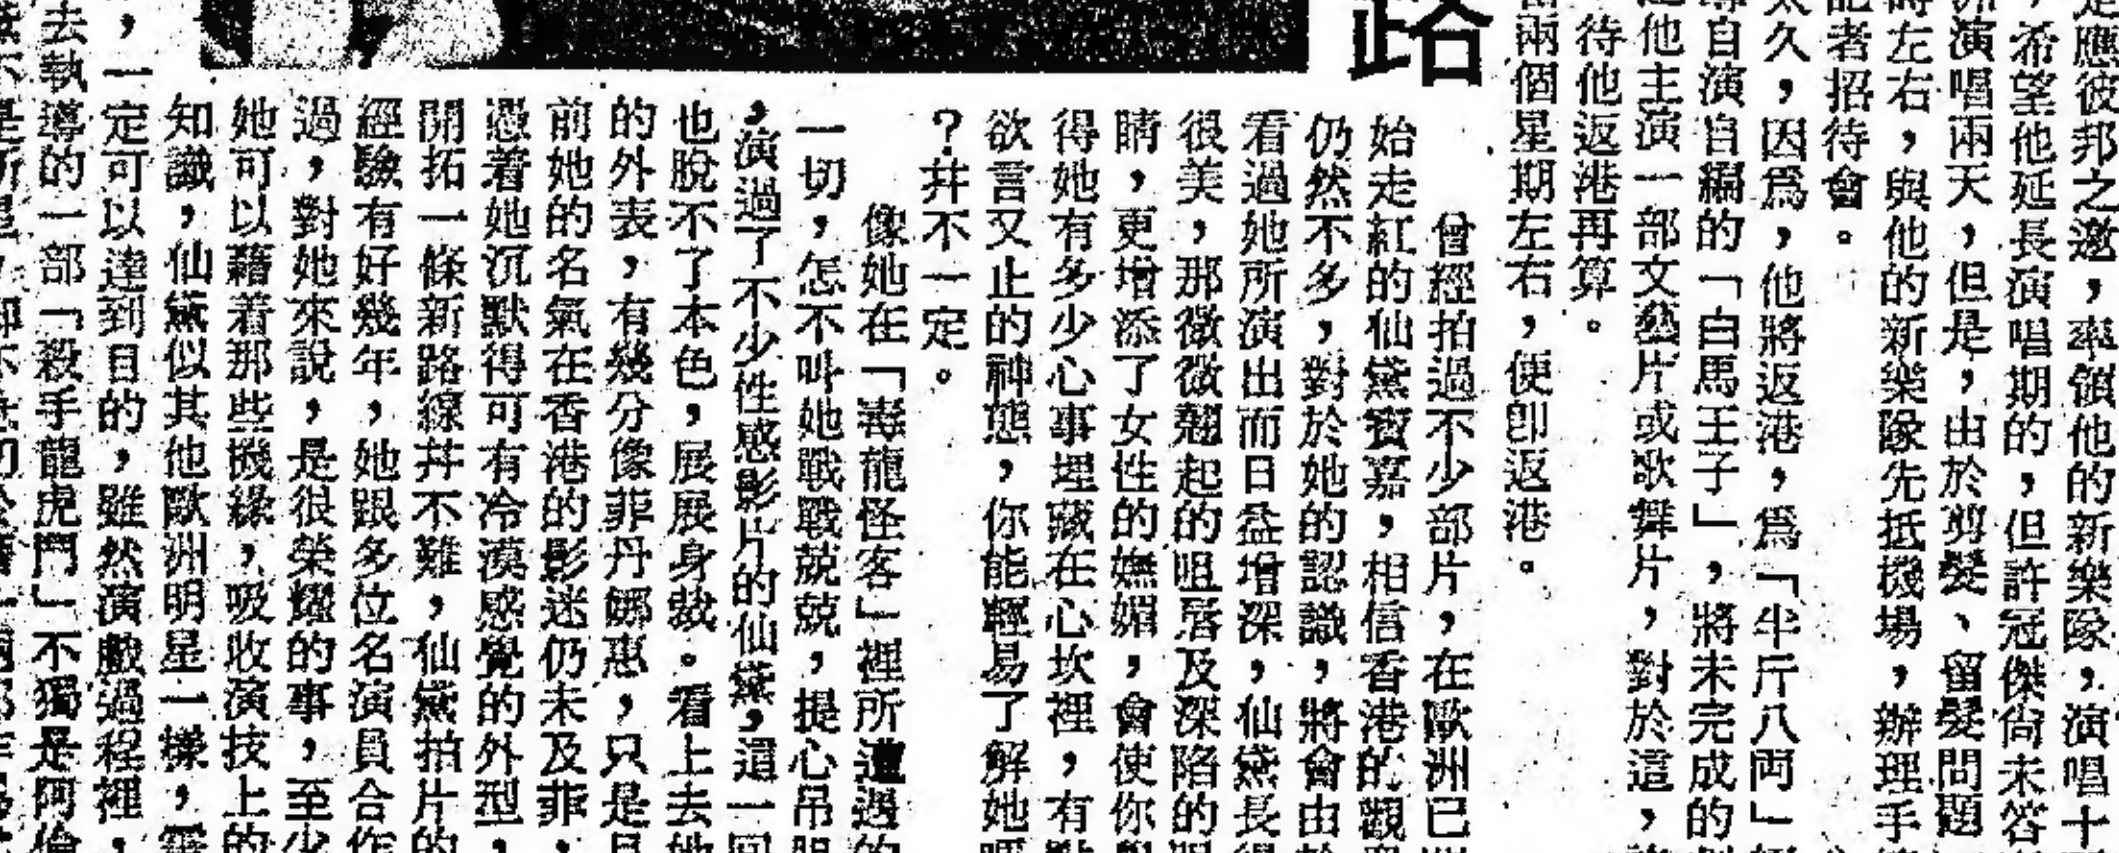 路
是應彼邦之邀，率領他的新樂隊，演唱十
，希望他延長演唱期的，但許冠傑尙未答
洲演唱兩天，但是，由於剪髮、留髮問題
時左右，與他的新樂隊先抵機場，辦理手
記者招待會。
太久，因爲，他將返港，爲「半斤八両」
導自演自編的「白馬王子」，將未完成的
他主演一部文藝片或歌舞片，對於這，
待他返港再算。
兩個星期左右，便即返港。
曾經拍過不少部片，在歐洲已
始走紅的仙黛寶嘉，相信香港的觀
仍然不多，對於她的認識，將會由
看過她所演出而日益增深，仙黛長得
很美，那微微翹起的咀唇及深陷的眼
睛，更增添了女性的嫵媚，會使你
得她有多少心事埋藏在心坎裡，有
欲言又止的神態，你能輕易了解她
？幷不一定。
像她在「毒龍怪客」裡所遭遇的
一切，怎不叫她戰戰兢兢，提心吊胆
，演過了不少性感影片的仙黛，這一回
也脫不了本色，展展身裁。看上去她
的外表，有幾分像菲丹娜惠，只是目
前她的名氣在香港的影迷仍未及菲，
憑着她沉默得可有冷漠感覺的外型，
開拓一條新路線幷不難，仙黛拍片的
經驗有好幾年，她跟多位名演員合作
過，對她來說，是很榮耀的事，至少
她可以藉着那些機緣，吸收演技上的
知識，仙黛似其他歐洲明星一樣，
，一定可以達到目的，雖然演戲過程裡，
去執導的一部「殺手龍虎鬥」不獨是阿倫